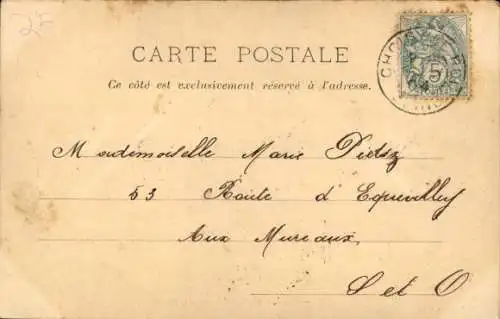 25
CARTE POSTALE
Ce côté est exclusivement réservé à l'adresse.
CHOISY
5
Mademoiselle Marie Dietz
53 Route d'Equevilley
Aux Mureaux
S et O